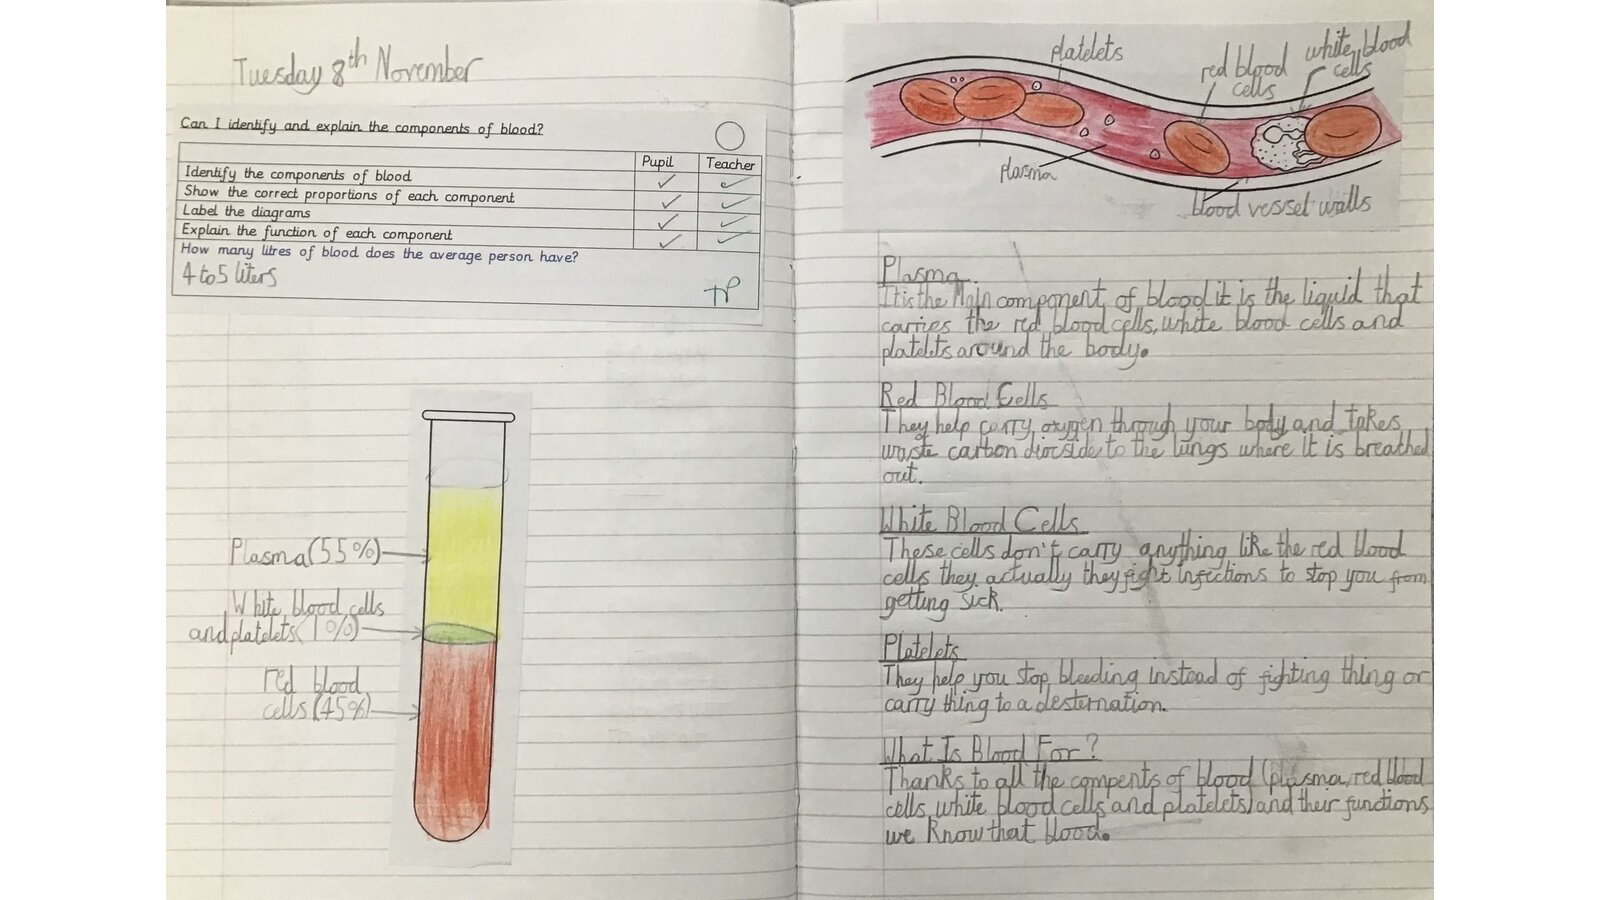 Tuesday 8th November
Can I identify and explain the components of blood?
Pupil Teacher
Identify the components of blood ✓ ✓
Show the correct proportions of each component ✓ ✓
Label the diagrams ✓ ✓
Explain the function of each component ✓ ✓
How many litres of blood does the average person have?
4 to 5 liters
TP
Plasma (55%)
White blood cells
and platelets (1%)
red blood
cells (45%)
platelets
red blood
cells
white blood
cells
plasma
blood vessel walls
Plasma
It is the Main component of blood it is the liquid that
carries the red blood cells, white blood cells and
platelets around the body.
Red Blood Cells
They help carry oxygen through your body and takes
waste carbon diocside to the lungs where it is breathed
out.
White Blood Cells
These cells don't carry anything like the red blood
cells they actually they fight infections to stop you from
getting sick.
Platelets
They help you stop bleeding instead of fighting thing or
carry thing to a desternation.
What Is Blood For?
Thanks to all the compents of blood (plasma, red blood
cells, white blood cells and platelets) and their functions
we Know that blood.